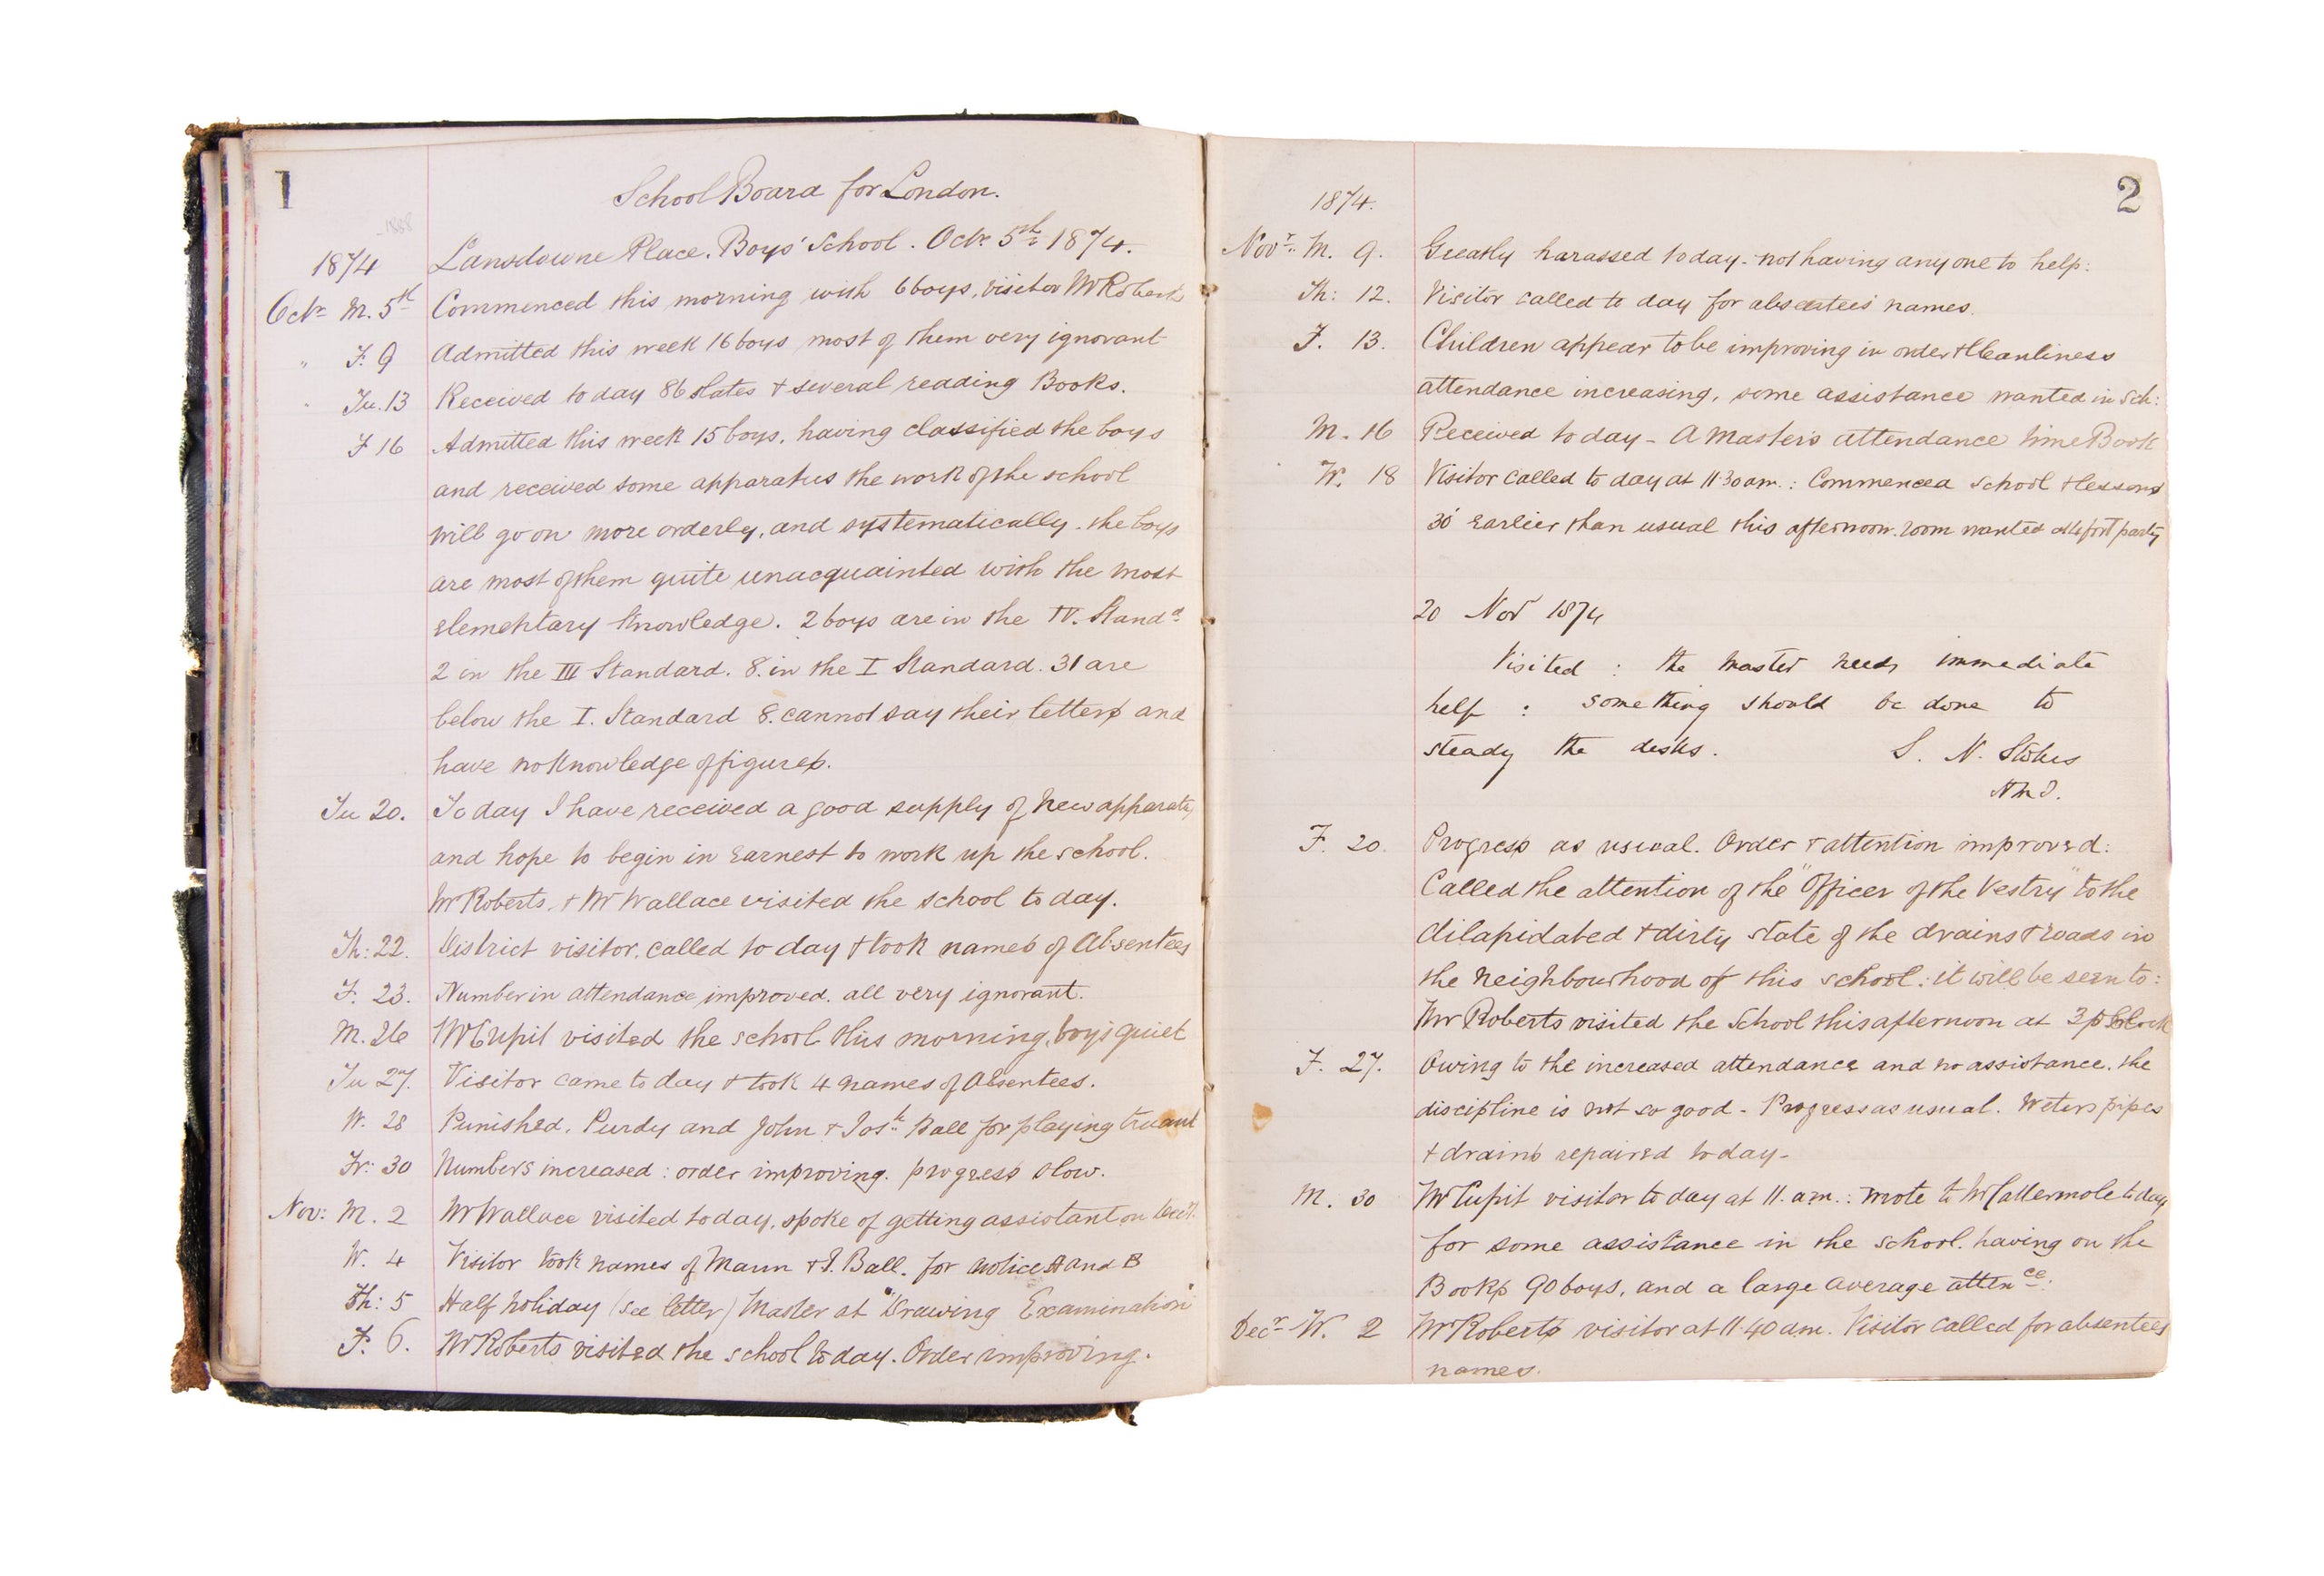 1
School Board for London.
1888
1874 Lansdowne Place. Boys' School. Octr 5th 1874.
Octr M. 5th Commenced this morning with 6 boys, visitor Mr Roberts
" F. 9 Admitted this week 16 boys most of them very ignorant
Tu. 13 Received to day 86 slates & several reading Books.
F 16 Admitted this week 15 boys, having classified the boys
and received some apparatus the work of the school
will go on more orderly, and systematically. the boys
are most of them quite unacquainted with the most
elementary knowledge. 2 boys are in the IV. Standd
2 in the III Standard. 8. in the I Standard. 31 are
below the I. Standard 8. cannot say their letters and
have no knowledge of figures.
Tu 20. To day I have received a good supply of new apparatus
and hope to begin in earnest to work up the school.
Mr Roberts, & Mr Wallace visited the school to day.
Th: 22. District visitor, called to day & took names of Absentees
F. 23. Number in attendance improved. all very ignorant.
M. 26 Mr Cupit visited the school this morning, boys quiet
Tu 27. Visitor came to day & took 4 names of Absentees.
W. 28 Punished, Purdy and John & Josh Ball for playing truant
Fr: 30 Numbers increased: order improving. progress slow.
Nov: M. 2 Mr Wallace visited to day, spoke of getting assistant on
W. 4 Visitor took names of Mann & J. Ball. for notice A and B
Th: 5 Half holiday (see letter) Master at "Drawing Examination"
F. 6. Mr Roberts visited the school to day. Order improving.
2
1874.
Novr. M. 9. Greatly harassed to day - not having any one to help:
Th: 12. Visitor called to day for absentees names.
F. 13. Children appear to be improving in order & Cleanliness
attendance increasing, some assistance wanted in Sch:
M. 16 Received to day - A Masters attendance time Book
W. 18 Visitor called to day at 11.30 am.: Commenced school & lessons
30' earlier than usual this afternoon. room wanted party
20 Nov 1874
Visited : the Master needs immediate
help : something should be done to
steady the desks. S. N. Stokes
HMI.
F. 20. Progress as usual. Order & attention improved:
Called the attention of the "Officer of the Vestry" to the
dilapidated & dirty state of the drains & roads in
the neighbourhood of this school: it will be seen to:
Mr Roberts visited the School this afternoon at 3 o'clock
F. 27. Owing to the increased attendance and no assistance. the
discipline is not so good - Progress as usual. Water pipes
& drains repaired to day -
M. 30 Mr Cupit visitor to day at 11. am.: wrote to Mr Cattermole to day
for some assistance in the school. having on the
Books 90 boys, and a large average attence.
Decr W. 2 Mr Roberts visitor at 11.40 am. Visitor called for absentees
names.